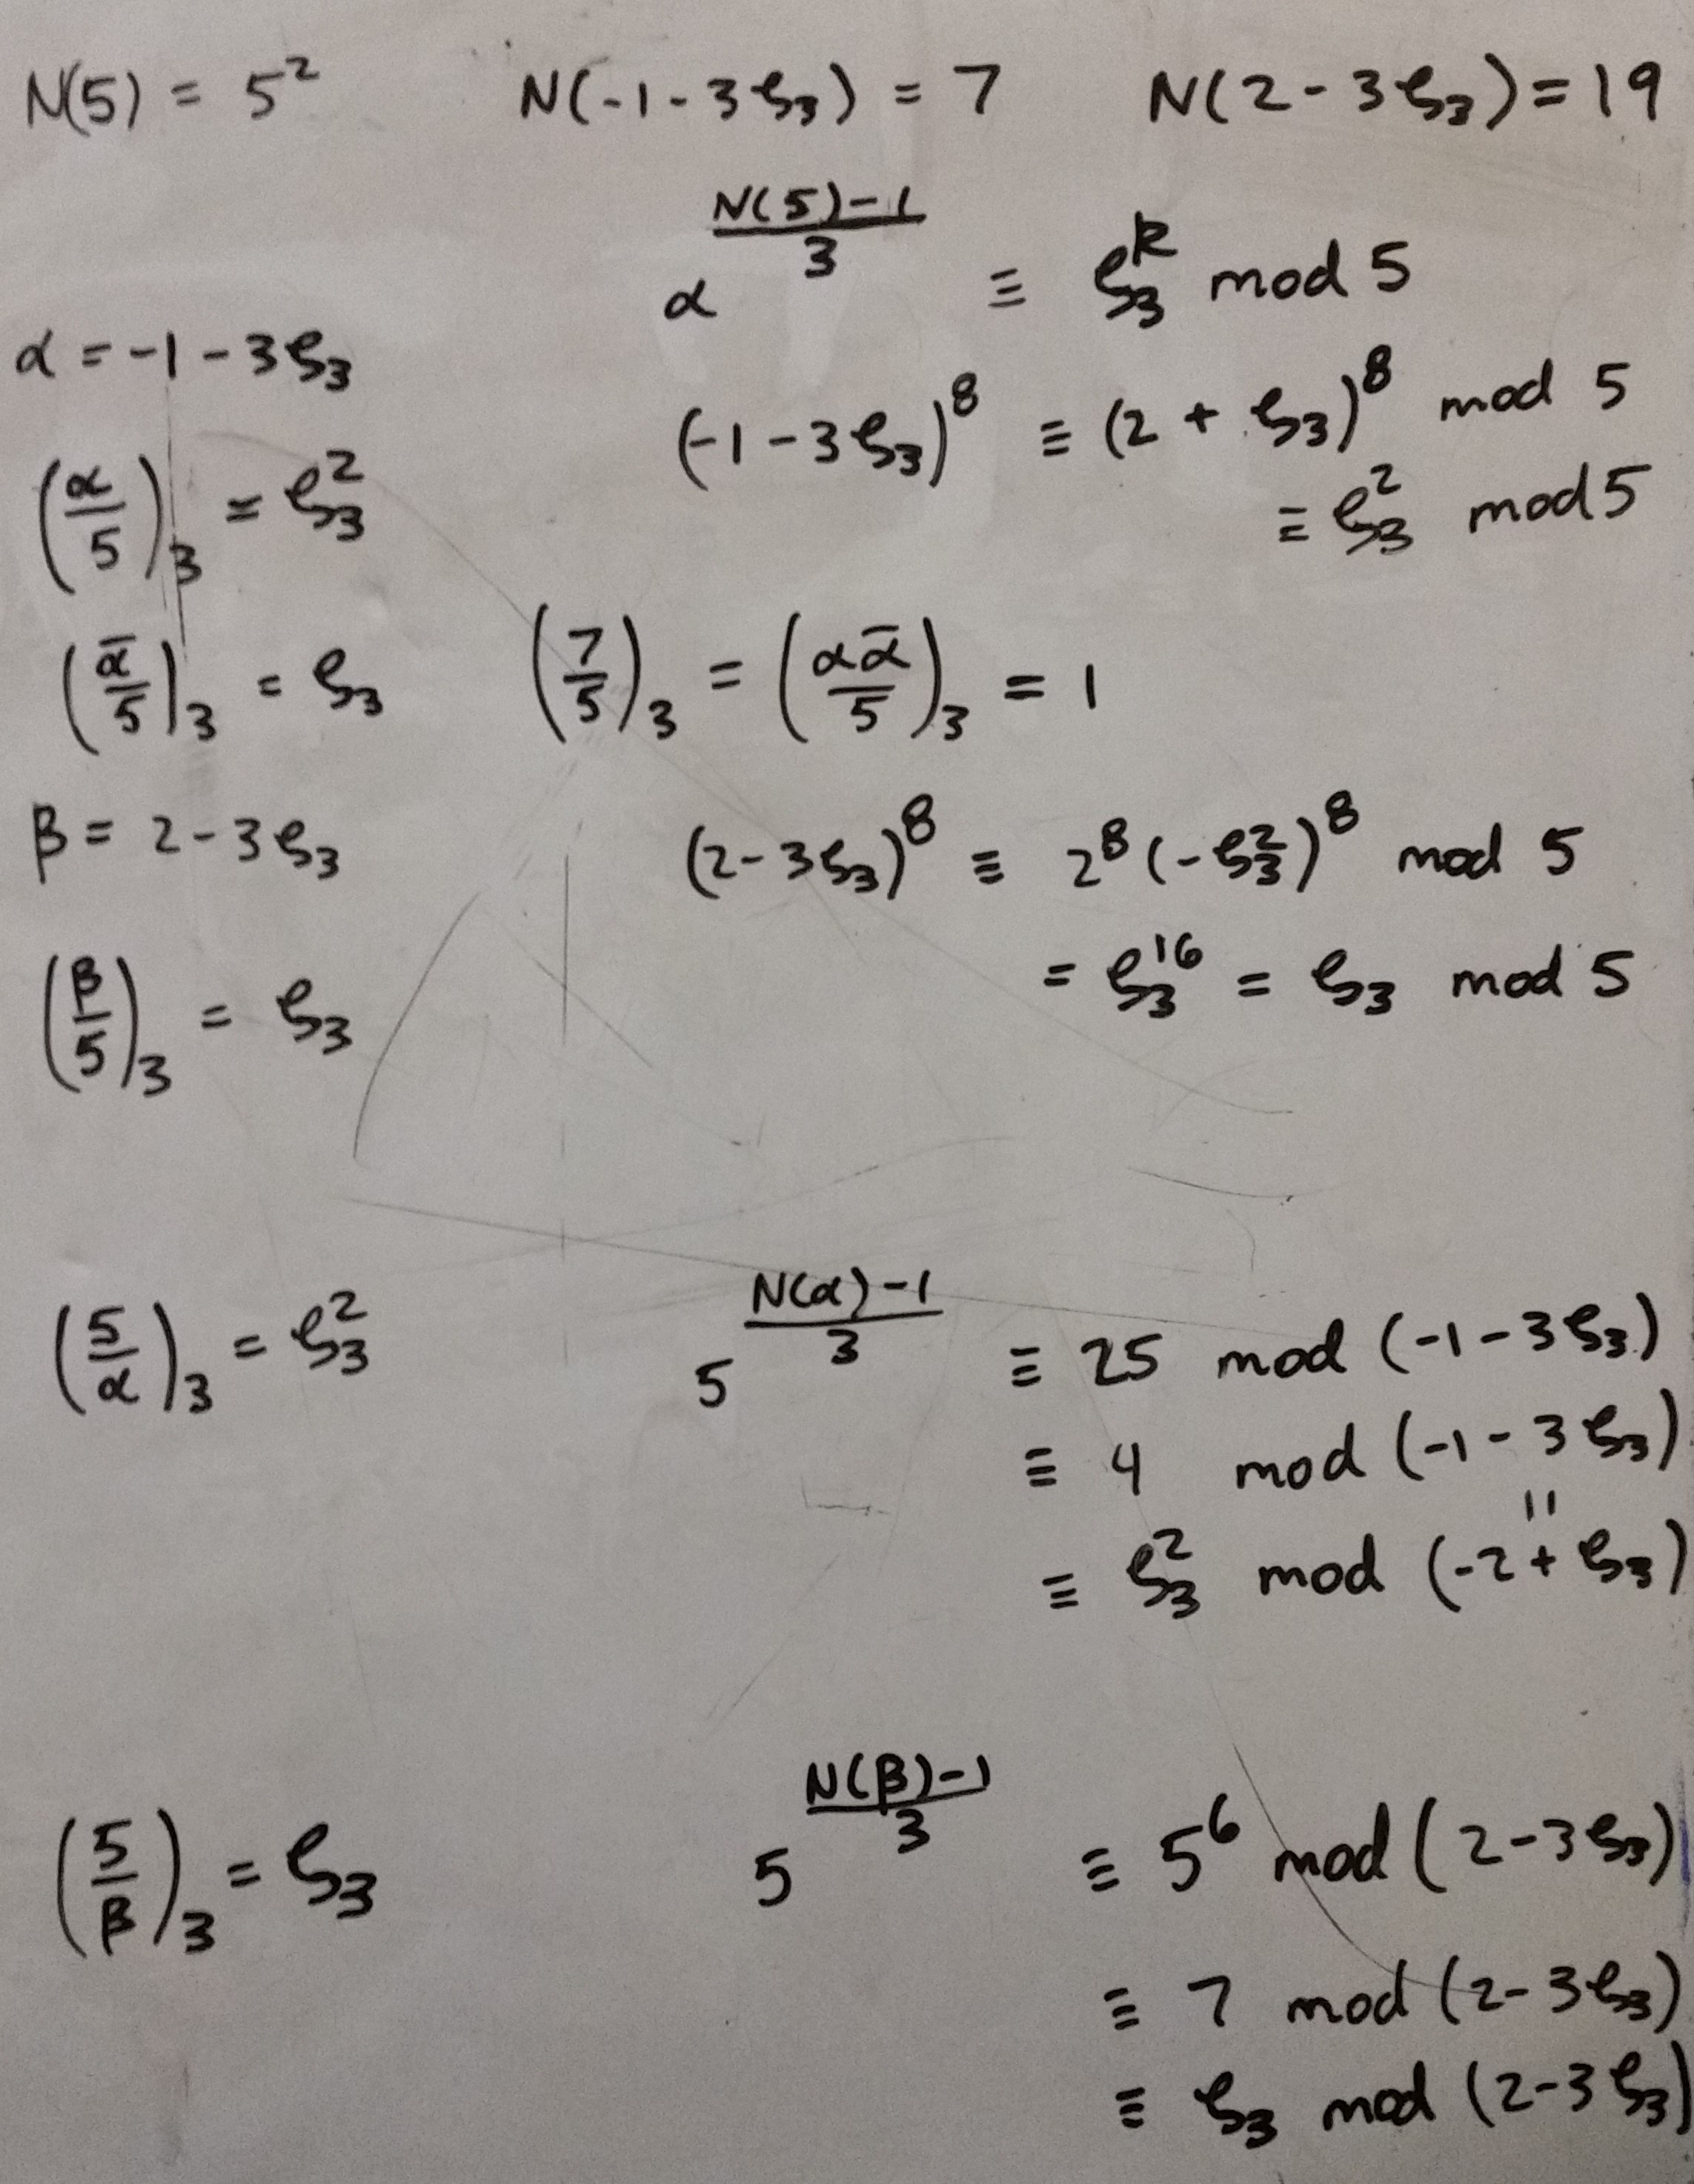 N(5) = 5² N(-1-3ζ₃) = 7 N(2-3ζ₃) = 19
α^((N(5)-1)/3) ≡ ζ₃^k mod 5
α = -1-3ζ₃
(-1-3ζ₃)⁸ ≡ (2+ζ₃)⁸ mod 5
(α/5)₃ = ζ₃²
≡ ζ₃² mod 5
(ᾱ/5)₃ = ζ₃ (7/5)₃ = (αᾱ/5)₃ = 1
β = 2-3ζ₃ (2-3ζ₃)⁸ ≡ 2⁸(-ζ₃²)⁸ mod 5
(β/5)₃ = ζ₃ = ζ₃¹⁶ = ζ₃ mod 5
(5/α)₃ = ζ₃² 5^((N(α)-1)/3) ≡ 25 mod (-1-3ζ₃)
≡ 4 mod (-1-3ζ₃)
||
≡ ζ₃² mod (-2+ζ₃)
(5/β)₃ = ζ₃ 5^((N(β)-1)/3) ≡ 5⁶ mod (2-3ζ₃)
≡ 7 mod (2-3ζ₃)
≡ ζ₃ mod (2-3ζ₃)